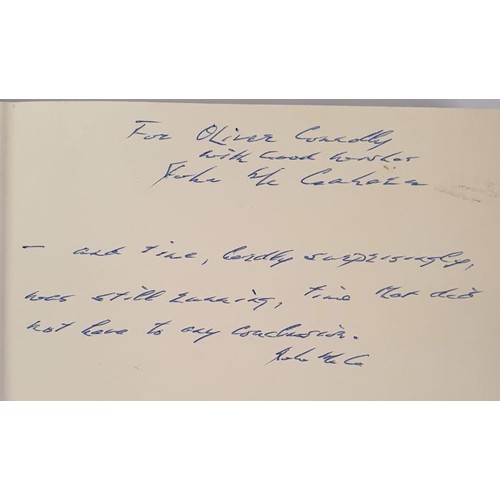 For Oliver Connolly
with Good Wishes
John McGahern
– and time, hardly surprisingly,
was still running, time that did
not have to any conclusion.
John McG